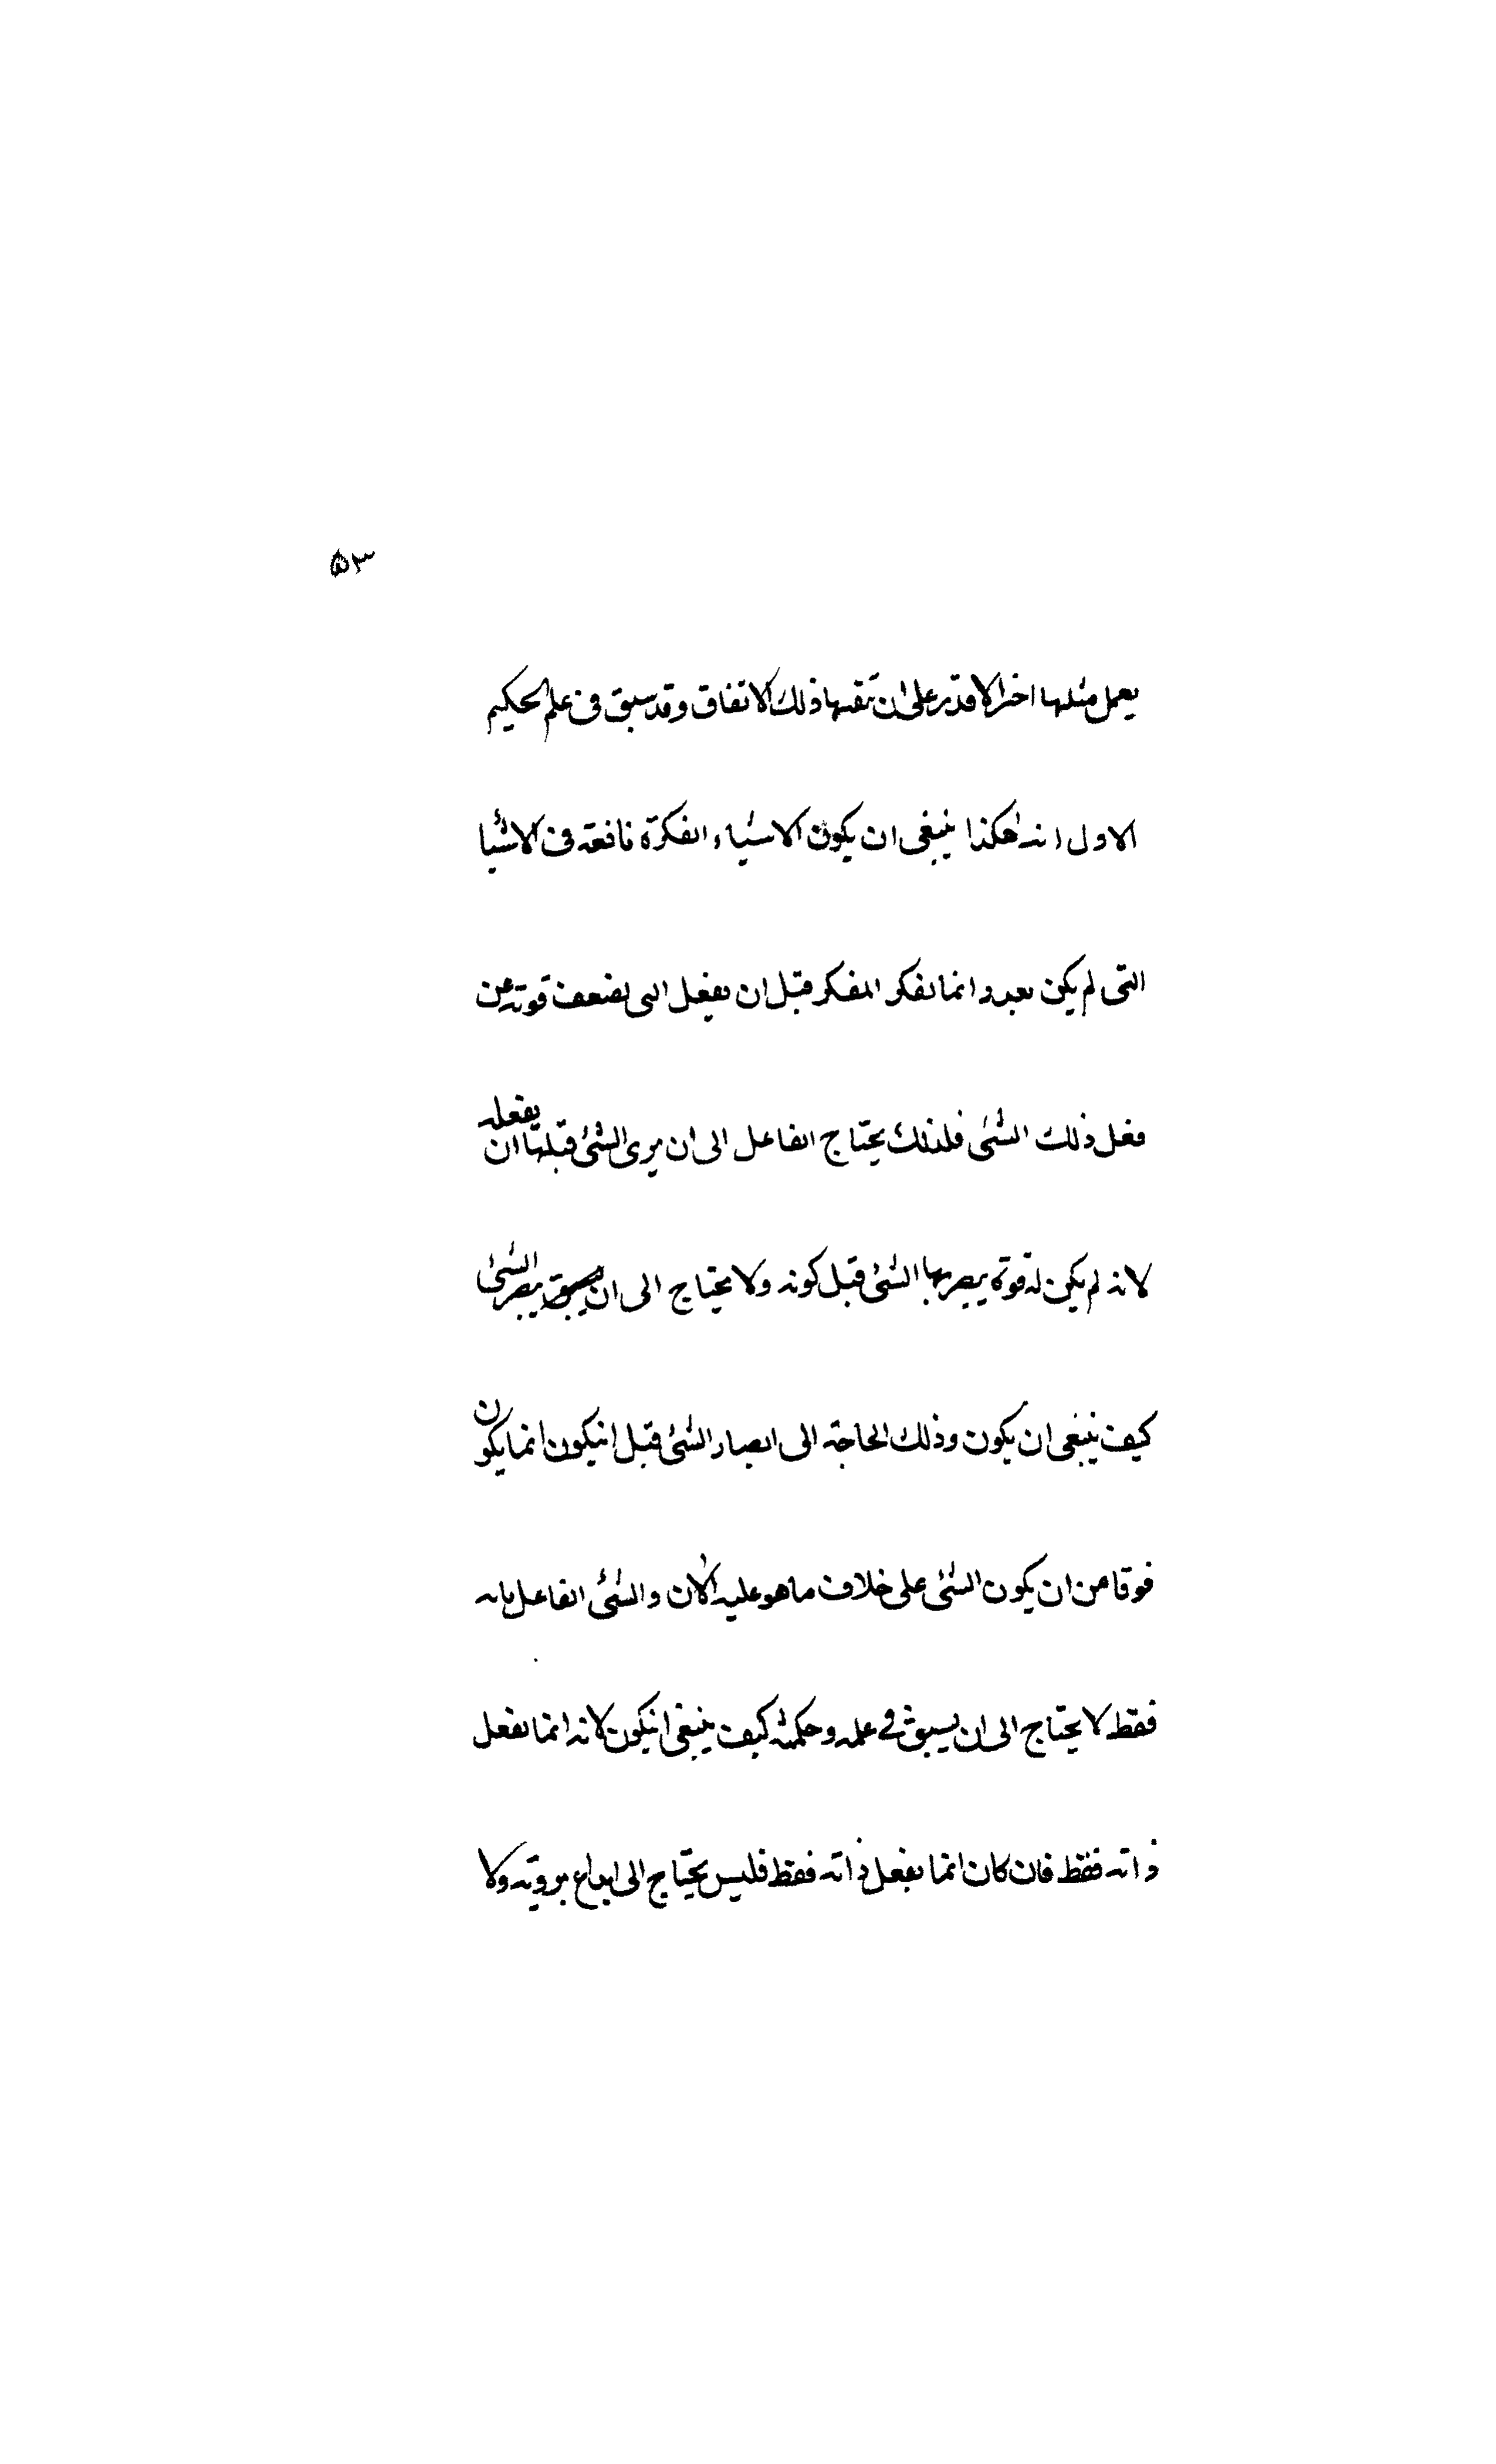 ٥٣
يعمل مثلها اخر لا قدر على ان تقنها ذلك الاتفاق وقد سبق فى علم الحكيم
الاول انه هكذا ينبغى ان يكون الاشياء الفكرة نافعة فى الاشيا
التى لم يكن بعد وانما يفكر المفكر قبل ان يفعل الى لضعف قوته عن
فعل ذلك الشئ فلذلك يحتاج الفاعل الى ان يرى الشئ قبل ان يفعله
لانه لم يكن له قوة يبصر بها الشئ قبل كونه ولا يحتاج الى ان يبصر الشئ
كيف ينبغى ان يكون وذلك الحاجة الى ابصار الشئ قبل انيكون انما يكون
فوقا من ان يكون الشئ على خلاف ما هو عليه الان والشئ الفاعل بانه
فقط لا يحتاج الى ان يسبق في علمه وحكمته كيف ينبغى انيكون لانه انما يفعل
ذاته فقط فان كان انما يفعل ذاته فقط فليس يحتاج الى ابداع برويته ولا